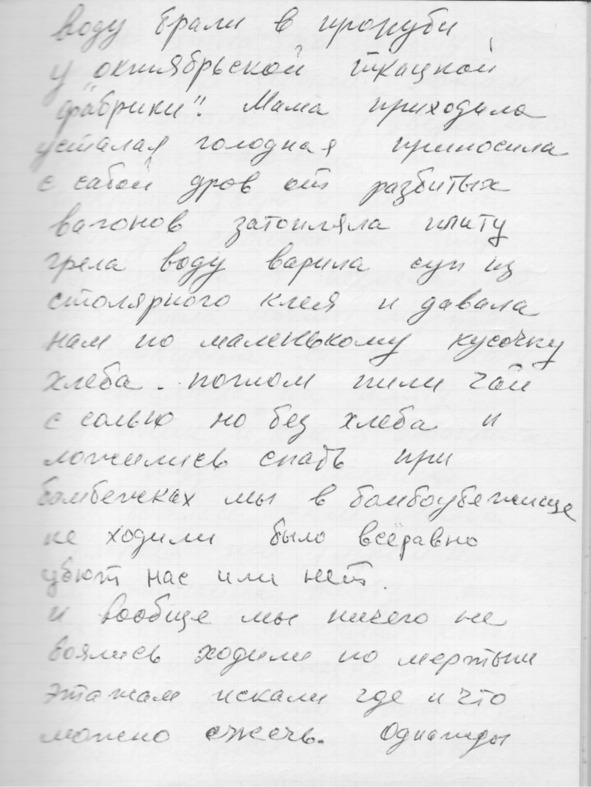 воду брали в проруби
у "октябрьской ткацкой
фабрики". Мама приходила
усталая голодная приносила
с сабой дров от разбитых
вагонов затопляла плиту
грела воду варила суп из
столярного клея и давала
нам по маленькому кусочку
хлеба. потом пили чай
с солью но без хлеба и
ложились спать при
бомбежках мы в бомбоубежище
не ходили было всёравно
убют нас или нет.
и вообще мы ничего не
боялись ходили по мертвым
этажам искали где и что
можно сжечь. Однажды